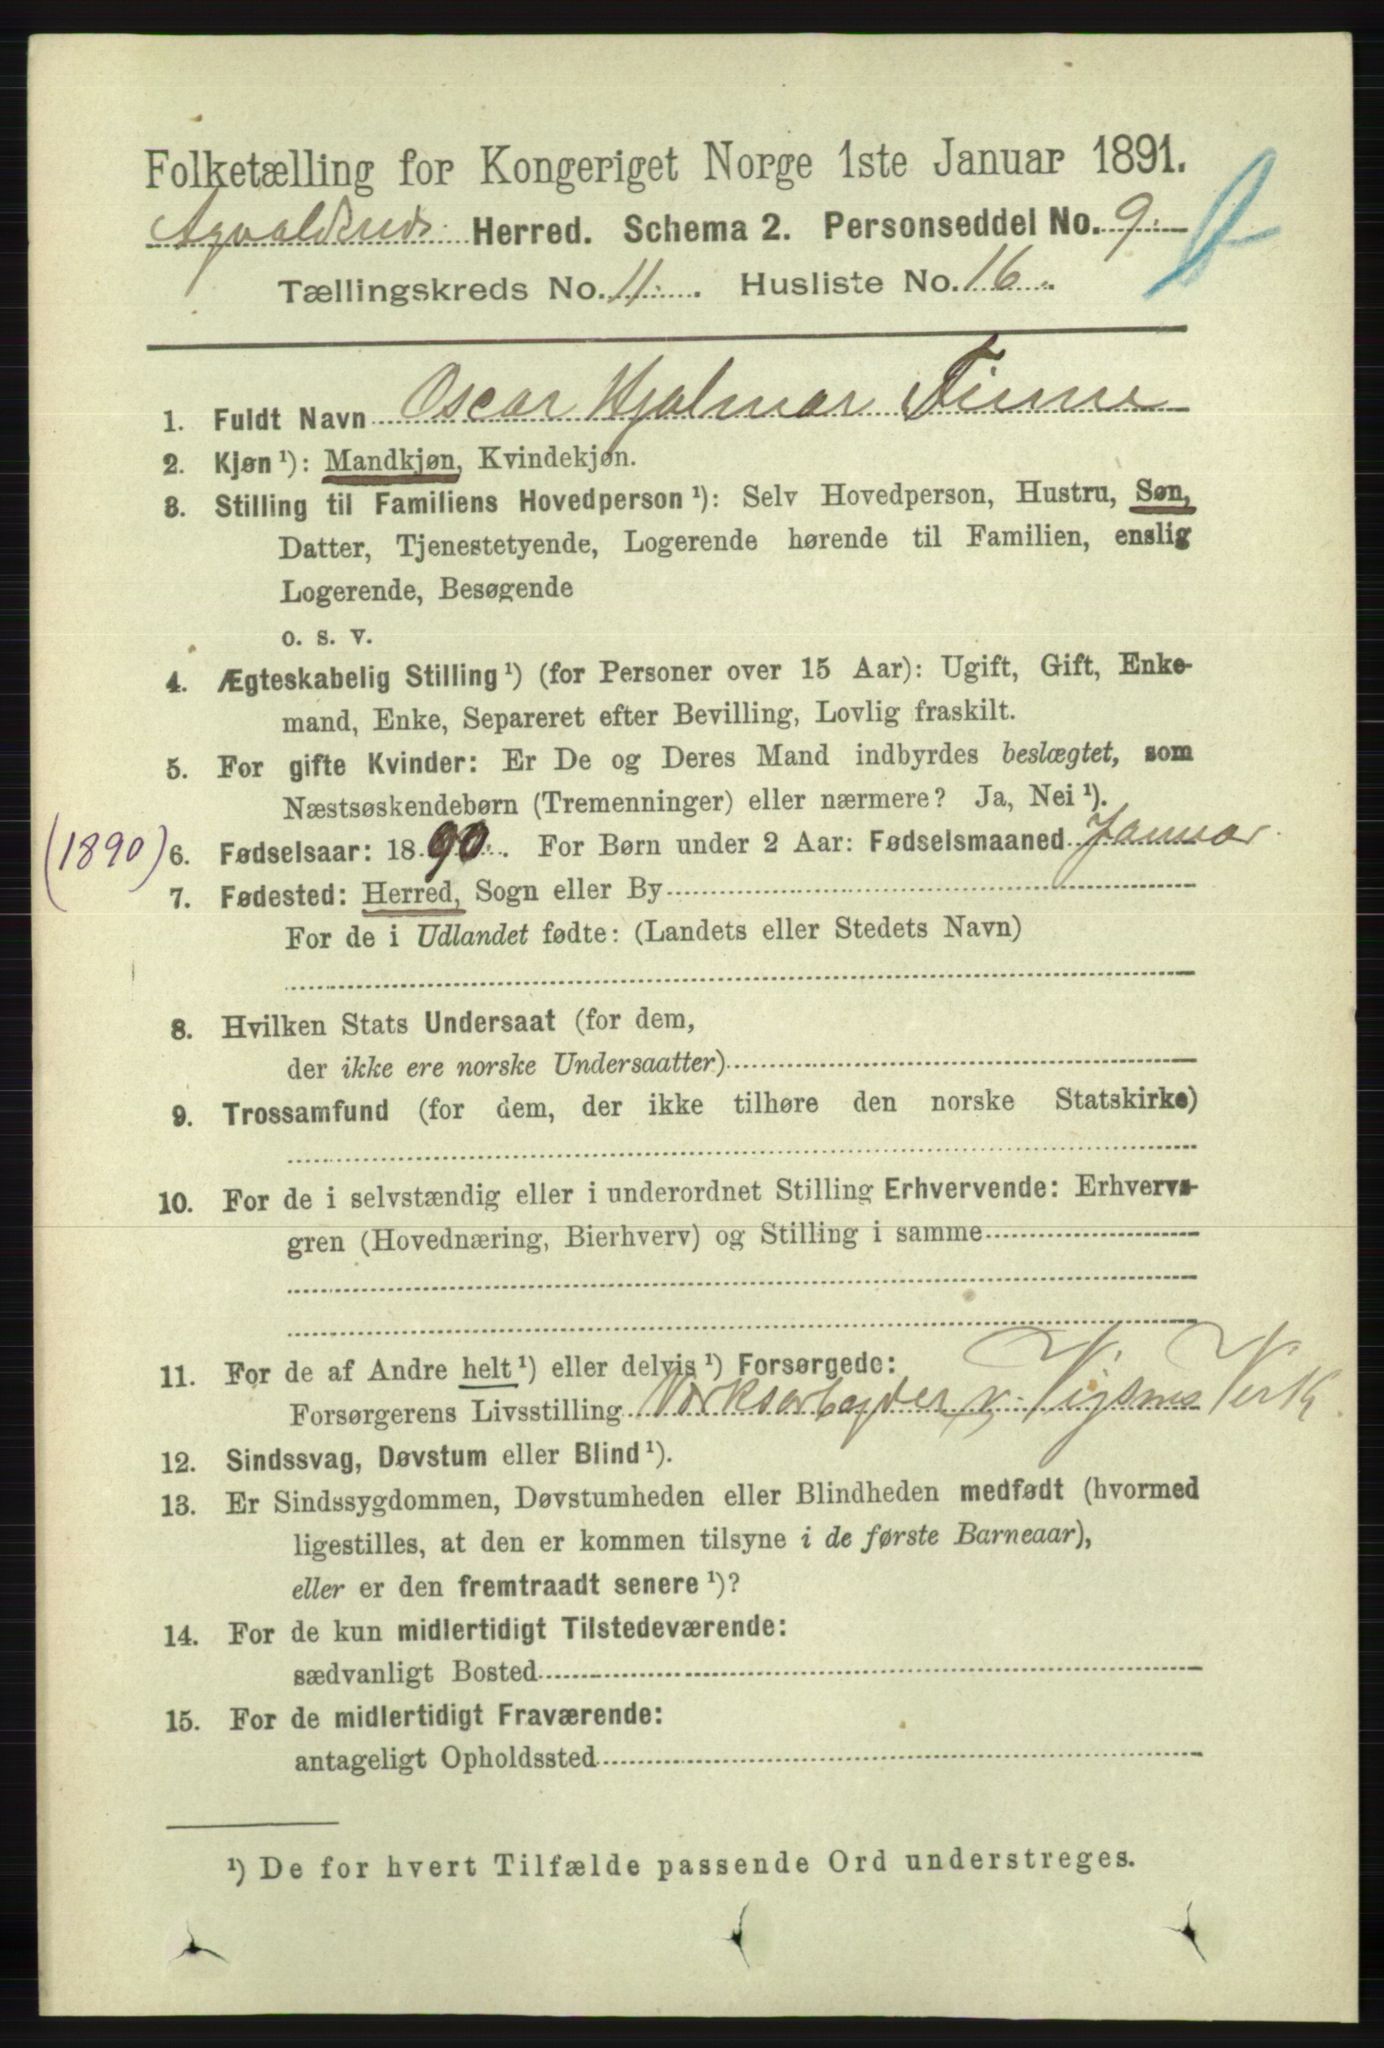 Folketælling for Kongeriget Norge 1ste Januar 1891.
Herred. Schema 2. Personseddel No. 9.
Tællingskreds No. 11. Husliste No. 16.
1. Fuldt Navn Oscar Hjalmar Finne
2. Kjøn ¹): Mandkjøn, Kvindekjøn.
3. Stilling til Familiens Hovedperson ¹): Selv Hovedperson, Hustru, Søn,
Datter, Tjenestetyende, Logerende hørende til Familien, enslig
Logerende, Besøgende
o. s. v.
4. Ægteskabelig Stilling ¹) (for Personer over 15 Aar): Ugift, Gift, Enke-
mand, Enke, Separeret efter Bevilling, Lovlig fraskilt.
5. For gifte Kvinder: Er De og Deres Mand indbyrdes beslægtet, som
Næstsøskendebørn (Tremenninger) eller nærmere? Ja, Nei ¹).
(1890) 6. Fødselsaar: 1890. For Børn under 2 Aar: Fødselsmaaned Januar.
7. Fødested: Herred, Sogn eller By
For de i Udlandet fødte: (Landets eller Stedets Navn)
8. Hvilken Stats Undersaat (for dem,
der ikke ere norske Undersaatter)
9. Trossamfund (for dem, der ikke tilhøre den norske Statskirke)
10. For de i selvstændig eller i underordnet Stilling Erhvervende: Erhvervs-
gren (Hovednæring, Bierhverv) og Stilling i samme
11. For de af Andre helt ¹) eller delvis ¹) Forsørgede:
Forsørgerens Livsstilling Værksarbejder v. Vigsnes Verk
12. Sindssvag, Døvstum eller Blind ¹).
13. Er Sindssygdommen, Døvstumheden eller Blindheden medfødt (hvormed
ligestilles, at den er kommen tilsyne i de første Barneaar),
eller er den fremtraadt senere ¹)?
14. For de kun midlertidigt Tilstedeværende:
sædvanligt Bosted
15. For de midlertidigt Fraværende:
antageligt Opholdssted
¹) De for hvert Tilfælde passende Ord understreges.